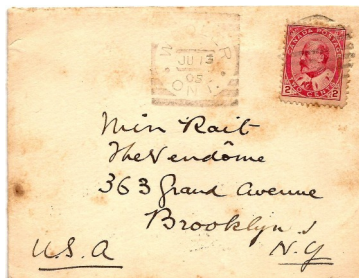 JU 13
05
ONT.
CANADA POSTAGE
2 2
TWO CENTS
Miss Rait
The Vendôme
363 Grand Avenue
Brooklyn
N.Y
U.S.A